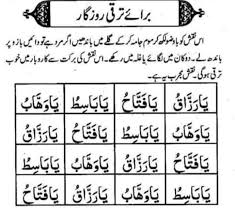 برائے ترقی روزگار
اس نقش کو باوضو لکھ کر موم جامہ کر کے گلے میں باندھیں اگر مرد ہے تو دائیں بازو پر
باندھ لے۔ دوکان میں لگائے یا غلہ میں رکھے۔ اس نقش کی برکت سے کاروبار میں خوب
ترقی ہوگی۔ نقش مجرب یہ ہے۔
يَاوَهَّابُ يَابَاسِطُ يَافَتَّاحُ يَارَزَّاقُ
يَارَزَّاقُ يَافَتَّاحُ يَابَاسِطُ يَاوَهَّابُ
يَافَتَّاحُ يَارَزَّاقُ يَاوَهَّابُ يَابَاسِطُ
يَابَاسِطُ يَاوَهَّابُ يَارَزَّاقُ يَافَتَّاحُ